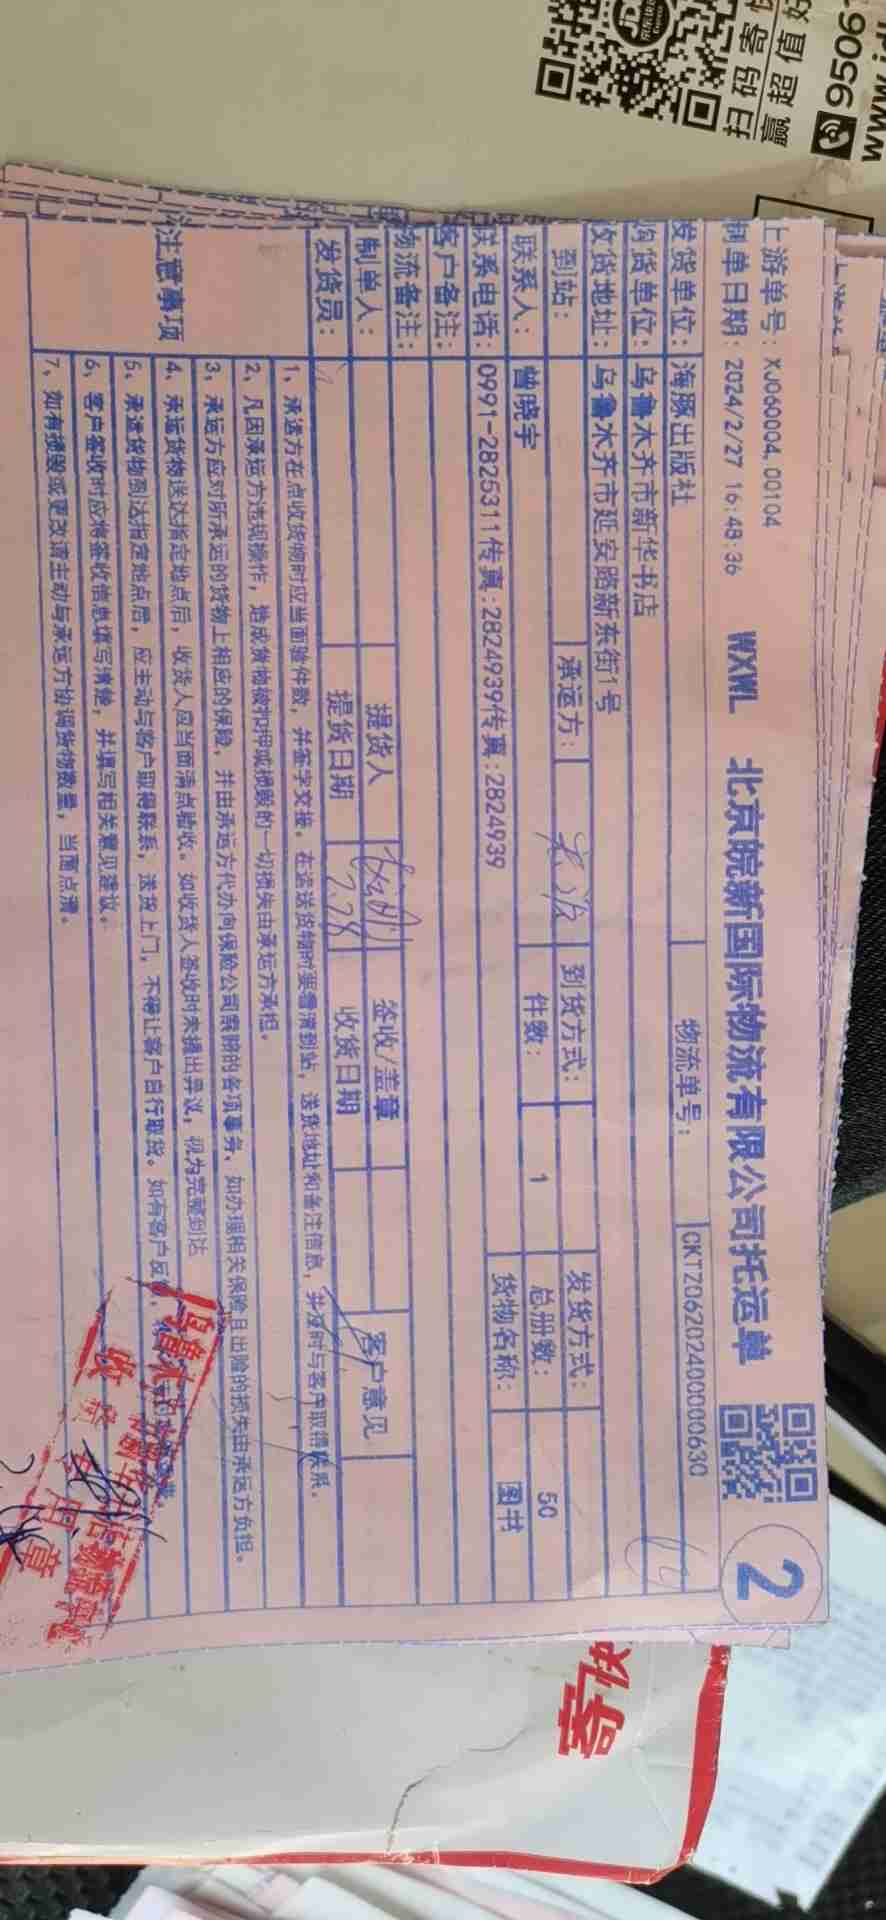 扫码寄快
赢超值好
9506
上游单号：XJ060004.00104
制单日期：2024/2/27 16:48:36
WXWL 北京皖新国际物流有限公司托运单
2
发货单位：海豚出版社
物流单号：CKTZ0620240000630
购货单位：乌鲁木齐市新华书店
收货地址：乌鲁木齐市延安路新东街1号
到站： 承运方： 到货方式： 发货方式：
联系人：曾晓宇 件数：1 总册数：50
联系电话：0991-2825311传真:2824939传真:2824939 货物名称：图书
客户备注：
物流备注：
制单人： 提货人 签收/盖章 客户意见
发货员： 提货日期 2.28 收货日期
注意事项
1、承运方在点收货物时应当面验件数，并签字交接。在运送货物时要看清到站，送货地址和备注信息，并及时与客户取得联系。
2、凡因承运方违规操作，造成货物被扣押或损毁的一切损失由承运方承担。
3、承运方应对所承运的货物上相应的保险，并由承运方代办向保险公司索赔的各项事务，如办理相关保险且出险的损失由承运方负担。
4、承运货物送达指定地点后，收货人应当面清点验收。如收货人签收时未提出异议，视为完整到达
5、承运货物到达指定地点后，应主动与客户取得联系，送货上门，不得让客户自行取货。如有客户反
6、客户签收时应将签收信息填写清楚，并填写相关意见建议。
7、如有损毁或更改请主动与承运方协调货物数量，当面点清。
寄快